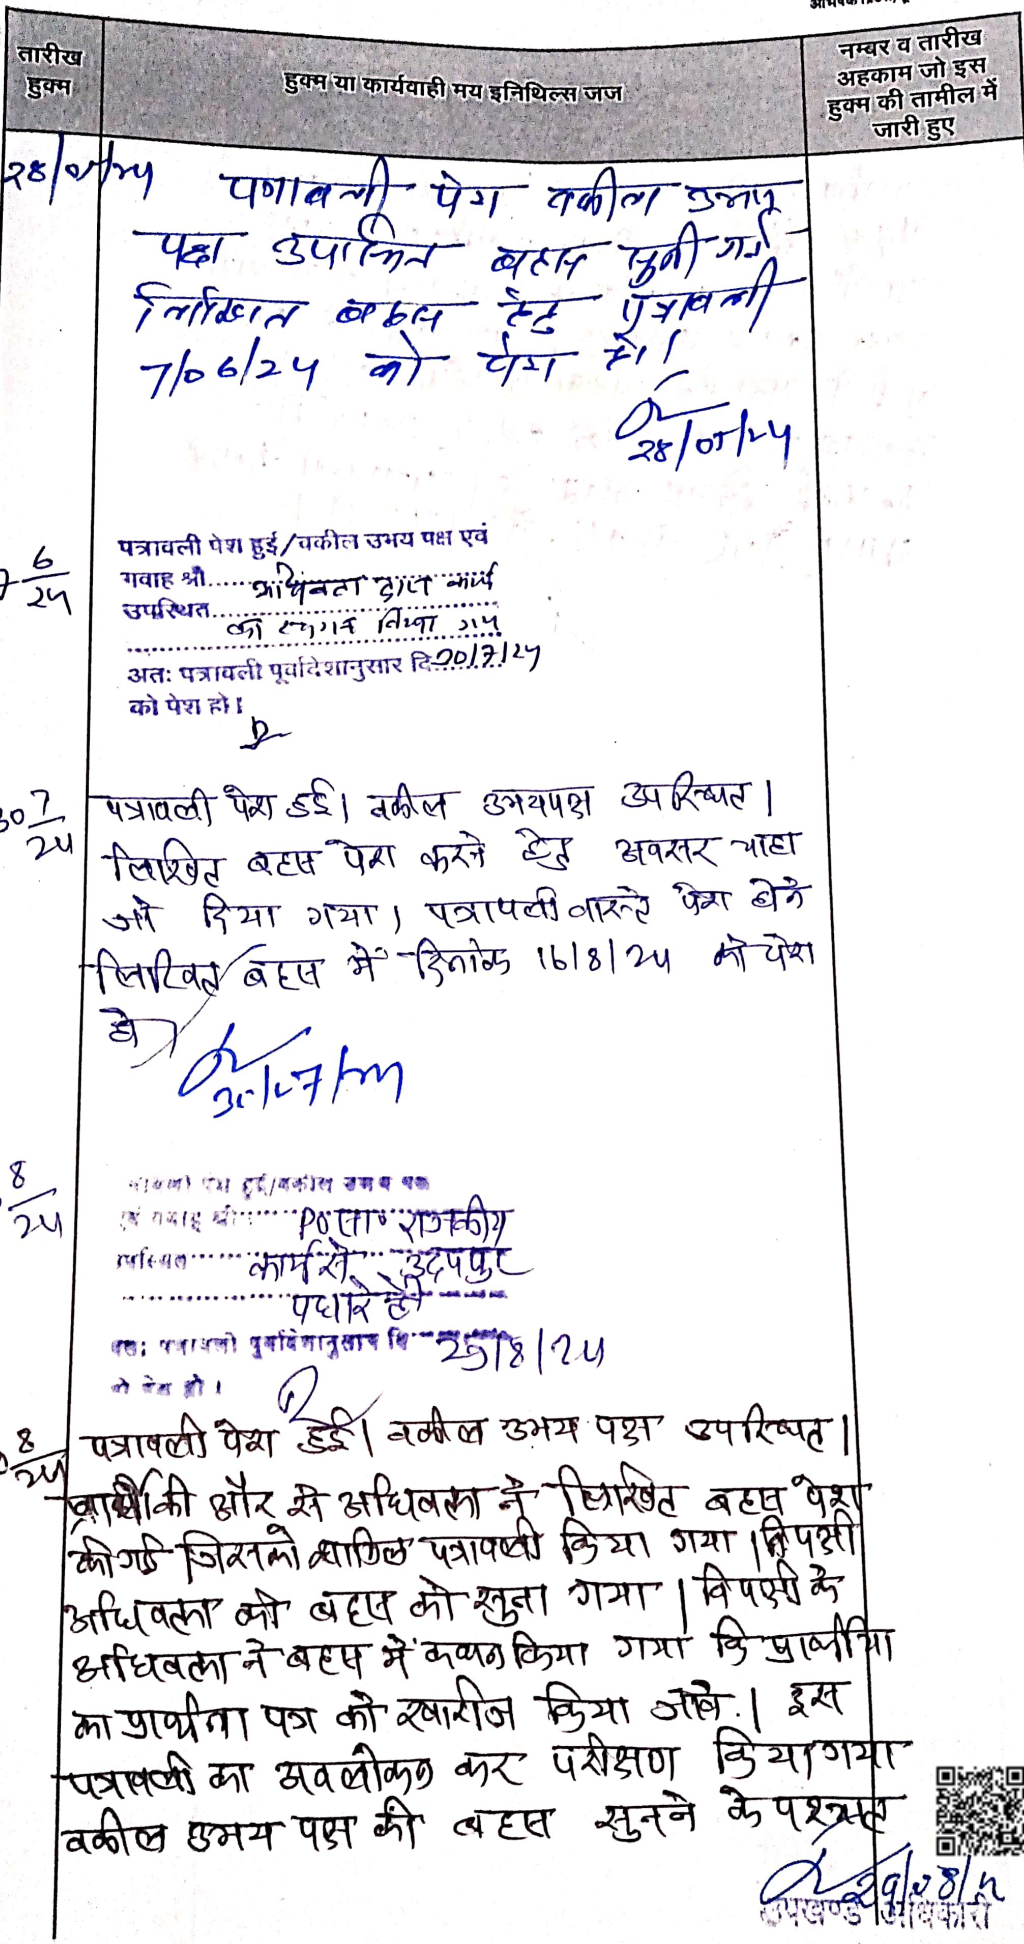 तारीख
हुक्म
हुक्म या कार्यवाही मय इनिथिल्स जज
नम्बर व तारीख
अहकाम जो इस
हुक्म की तामील में
जारी हुए
28/05/24 पत्रावली पेश वकील उभय
पक्ष उपस्थित बहस सुनी गई
लिखित बहस हेतु पत्रावली
7/06/24 को पेश हो।
28/05/24
6/24
पत्रावली पेश हुई/वकील उभय पक्ष एवं
गवाह श्री...... अधिवक्ता द्वारा कार्य
उपस्थित......
का स्थगन किया गया
अतः पत्रावली पूर्वादेशानुसार दि. 30/7/24
को पेश हो।
30 7/24 पत्रावली पेश हुई। वकील उभयपक्ष उपस्थित।
लिखित बहस पेश करने हेतु अवसर चाहा
जो दिया गया। पत्रावली वास्ते पेश होने
लिखित बहस में दिनांक 16/8/24 को पेश
हो।
30/07/24
8/24
पत्रावली पेश हुई/वकील उभय पक्ष
एवं गवाह श्री...... राजकीय
उपस्थित...... कार्य से उदयपुर
पधारे है
अतः पत्रावली पूर्वादेशानुसार दि. 29/8/24
को पेश हो।
8/24 पत्रावली पेश हुई। वकील उभय पक्ष उपस्थित।
प्रार्थी की और से अधिवक्ता ने लिखित बहस पेश
की गई जिसको शामिल पत्रावली किया गया। विपक्षी
अधिवक्ता की बहस को सुना गया। विपक्षी के
अधिवक्ता ने बहस में कथन किया गया कि प्रार्थीया
का प्रार्थना पत्र को खारीज किया जावे.। इस
पत्रावली का अवलोकन कर परीक्षण किया गया
वकील उभय पक्ष की बहस सुनने के पश्चात
29/08/24
उपखण्ड अधिकारी